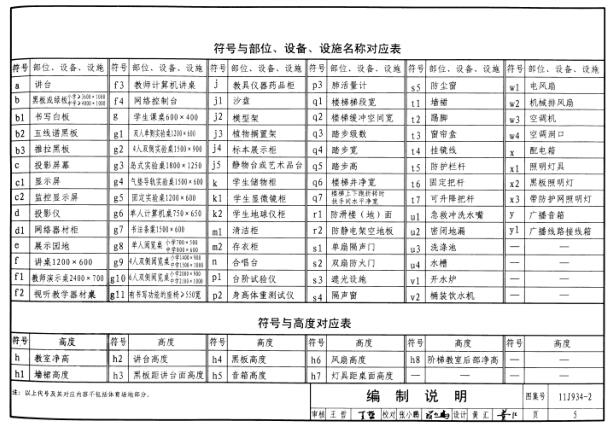 符号与部位、设备、设施名称对应表
符号 部位、设备、设施 符号 部位、设备、设施 符号 部位、设备、设施 符号 部位、设备、设施 符号 部位、设备、设施 符号 部位、设备、设施
a 讲台 f3 教师计算机讲桌 j 教具仪器药品柜 p3 肺活量计 s5 防尘窗 w1 电风扇
b 黑板或绿板 小学≥3600×1000 中学≥4000×1000 f4 网络控制台 j1 沙盘 q1 楼梯梯段宽 t1 墙裙 w2 机械排风扇
b1 书写白板 g 学生课桌600×400 j2 模型架 q2 楼梯缓冲空间宽 t2 踢脚 w3 空调机
b2 五线谱黑板 g1 双人单侧实验桌1200×600 j3 植物搁置架 q3 踏步级数 t3 窗帘盒 w4 空调洞口
b3 推拉黑板 g2 4人双侧实验桌1500×900 j4 标本展示柜 q4 踏步宽 t4 挂镜线 x 配电箱
c 投影屏幕 g3 岛式实验桌1800×1250 j5 静物台或艺术品台 q5 踏步高 t5 防护栏杆 x1 照明灯具
c1 显示屏 g4 气垫导轨实验桌1500×600 k 学生储物柜 q6 楼梯井净宽 t6 固定把杆 x2 黑板照明灯
c2 监控显示屏 g5 固定实验桌1200×600 k1 学生显微镜柜 q7 楼梯上下跑扶转时扶手间水平净宽 t7 可升降把杆 x3 带防护网照明灯
d 投影仪 g6 单人计算机桌750×650 k2 学生地球仪柜 r1 防滑楼（地）面 u1 急救冲洗水嘴 y 广播音箱
d1 网络器材柜 g7 书法条案1500×600 m1 清洁柜 r2 防静电架空地板 u2 密闭地漏 y1 广播线路接线箱
e 展示园地 g8 单人阅览桌 m2 存衣柜 s1 单扇隔声门 u3 洗涤池 — —
f 讲桌1200×600 g9 4人双侧阅览桌 n 合唱台 s2 双扇防火门 u4 水槽 — —
f1 教师演示桌2400×700 g10 6人双侧阅览桌 p1 台阶试验仪 s3 遮光设施 v1 开水炉 — —
f2 视听教学器材桌 g11 有书写功能的座椅≥550宽 p2 身高体重测试仪 s4 隔声窗 v2 桶装饮水机 — —
符号与高度对应表
符号 高度 符号 高度 符号 高度 符号 高度 符号 高度 符号 高度
h 教室净高 h2 讲台高度 h4 黑板高度 h6 风扇高度 h8 阶梯教室后部净高 — —
h1 墙裙高度 h3 黑板距讲台面高度 h5 音箱高度 h7 灯具距桌面高度 — — — —
注：以上代号及其对应内容不包括体育场地部分。
编制说明 图集号 11J934-2
审核 王哲 校对 张小鹏 设计 黄汇 页 5